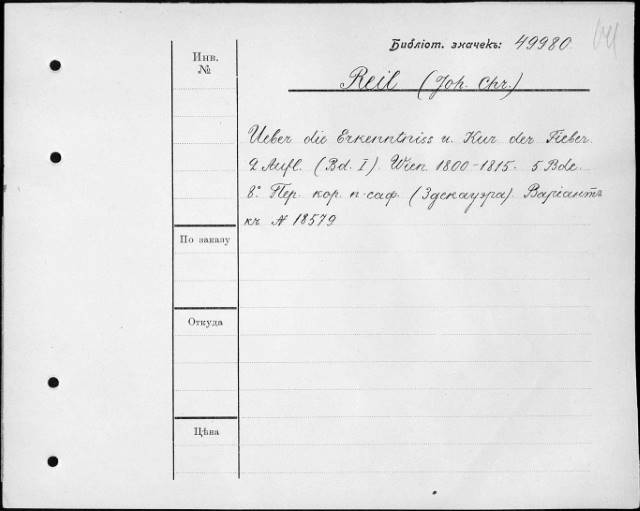 Библіот. значекъ: 49980.
Инв. №
Reil (Joh. Chr.)
Ueber die Erkenntniss u. Kur der Fieber.
2 Aufl. (Bd. I). Wien 1800-1815. 5 Bde.
8° Пер. кор. п-саф. (Здекауэра). Варіантъ
къ № 18579
По заказу
Откуда
Цѣна